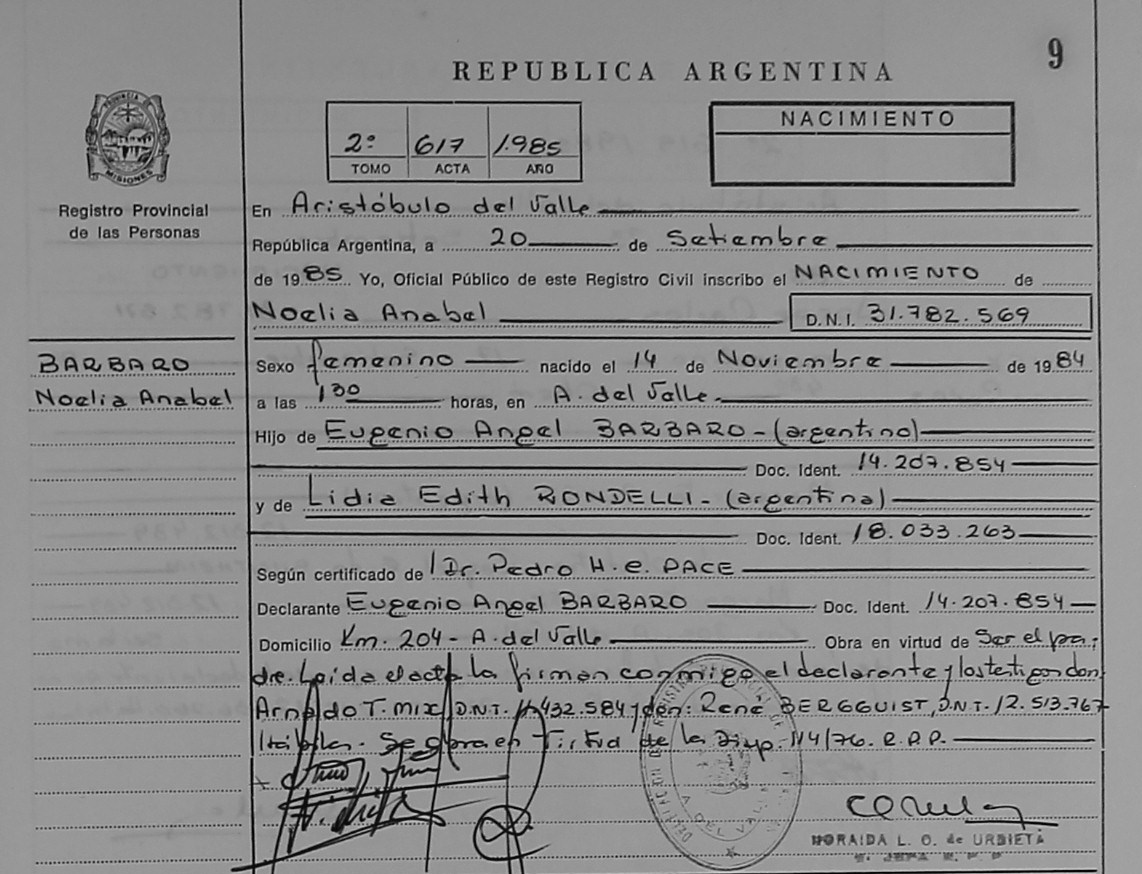 9
REPUBLICA ARGENTINA
PROVINCIA DE
MISIONES
Registro Provincial
de las Personas
2º 617 1.985
TOMO ACTA AÑO
NACIMIENTO
En Aristóbulo del Valle
República Argentina, a 20 de Setiembre
de 1985 Yo, Oficial Público de este Registro Civil inscribo el NACIMIENTO de
Noelia Anabel D.N.I. 31.782.569
BARBARO
Noelia Anabel
Sexo femenino nacido el 14 de Noviembre de 1984
a las 1 30 horas, en A. del Valle.
Hijo de Eugenio Angel BARBARO - (argentino)
Doc. Ident. 14.207.854
y de Lidia Edith RONDELLI - (argentina)
Doc. Ident. 18.033.263
Según certificado de Dr. Pedro H. e. PACE
Declarante Eugenio Angel BARBARO Doc. Ident. 14.207.854
Domicilio Km. 204 - A. del Valle Obra en virtud de Ser el pa-
dre. Leída el acta la firman conmigo el declarante y los testigos don
Arnoldo T. MIX, D.N.I. 432.584 y don: René BERGGUIST, D.N.I. 12.513.767
hábiles. Se labra en virtud de la Disp. 114/76. R.P.P.
A. DEL VALLE
NORAIDA L. O. de URBIETA